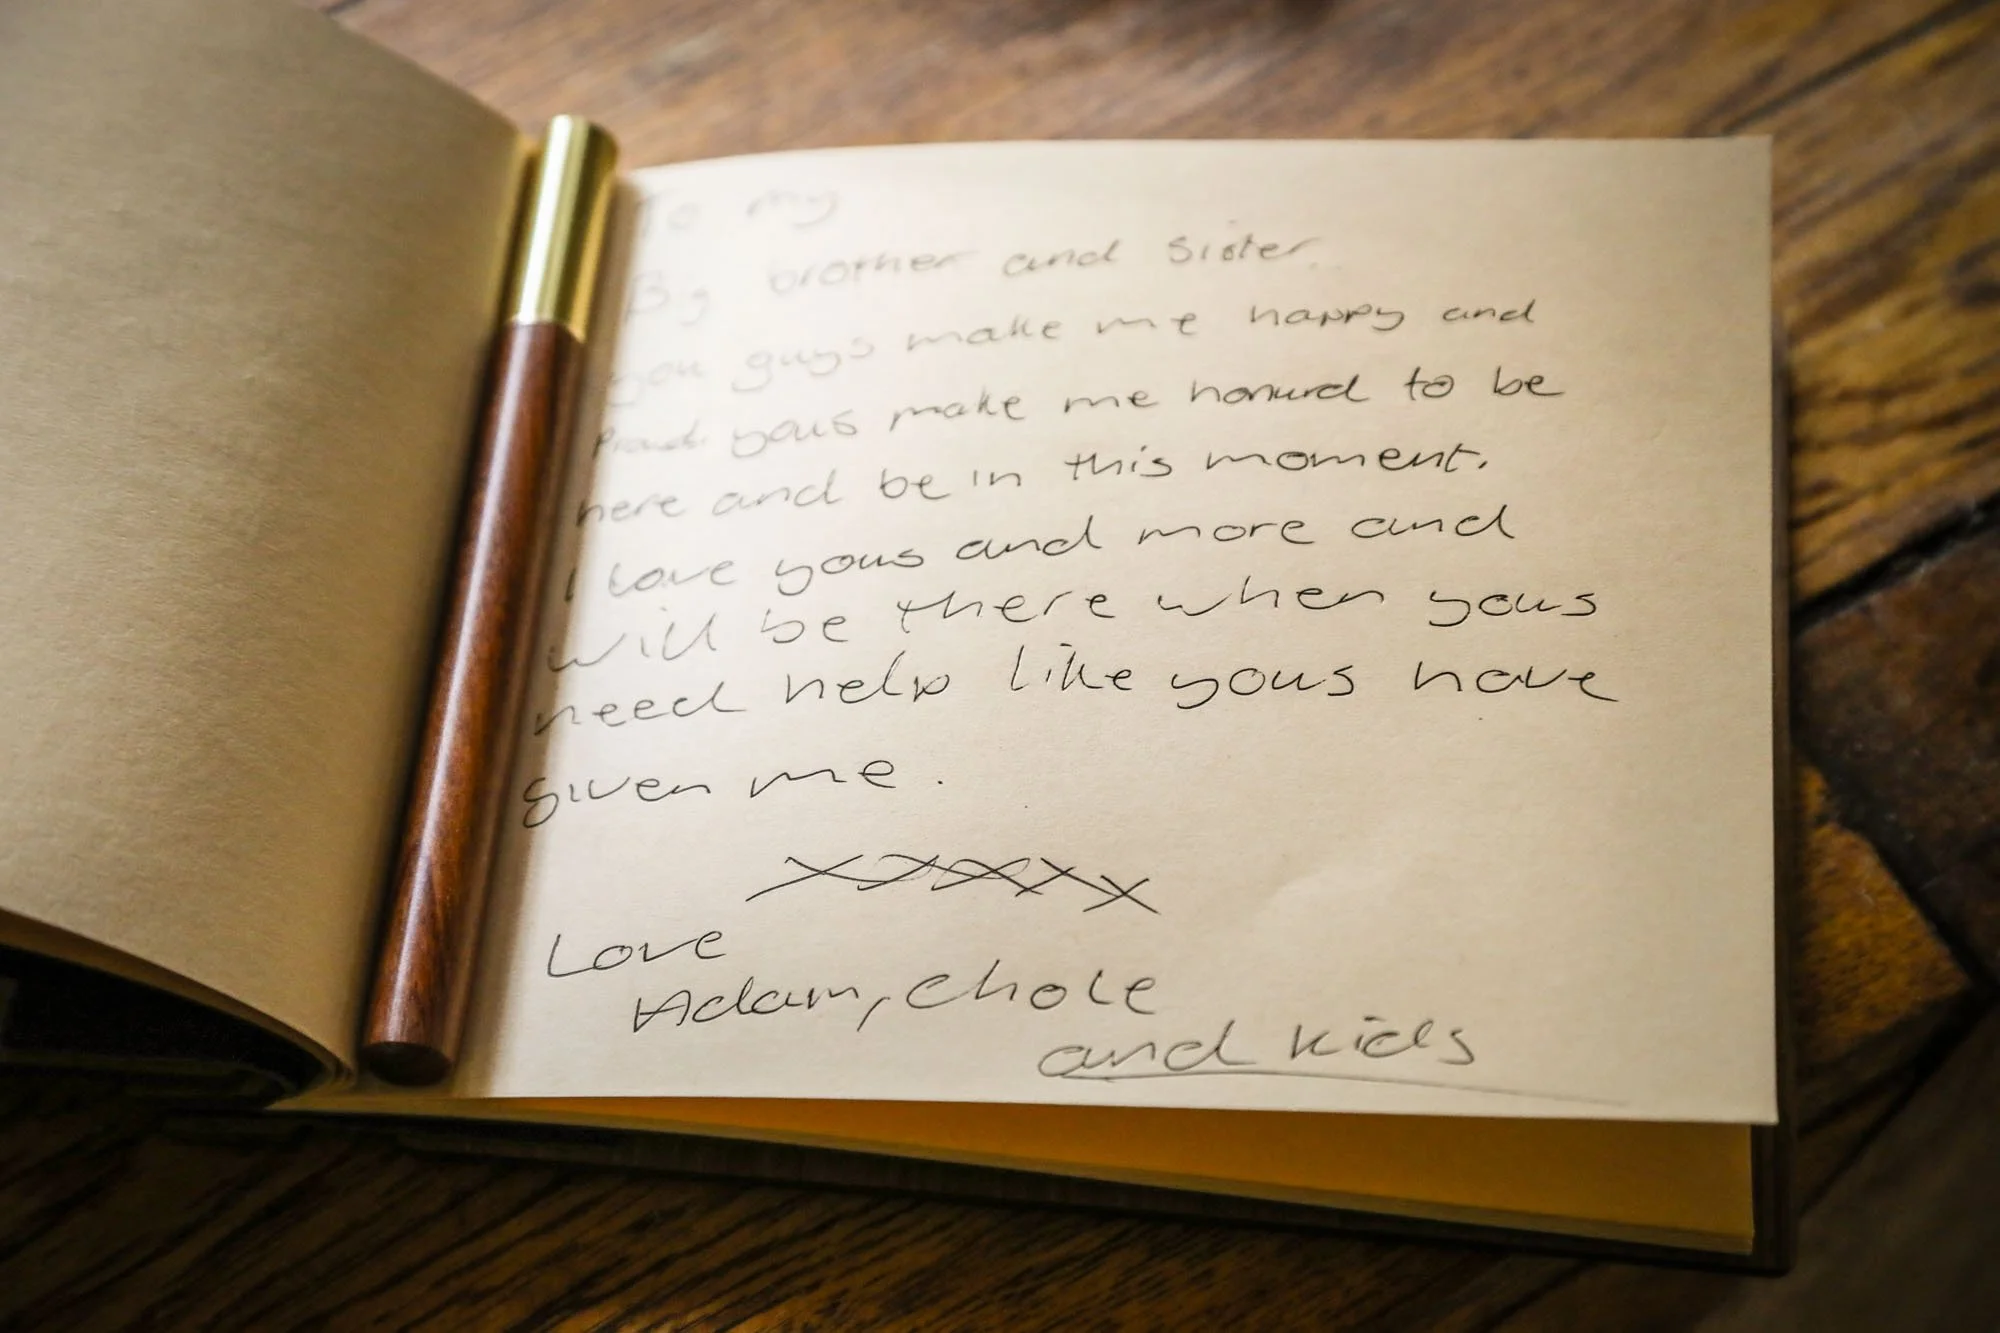 To my
Big brother and Sister.
you guys make me happy and
Proud. yous make me honurd to be
here and be in this moment.
I love yous and more and
will be there when yous
need help like yous have
given me.
xxxxx
Love
Adam, Chole
and kids